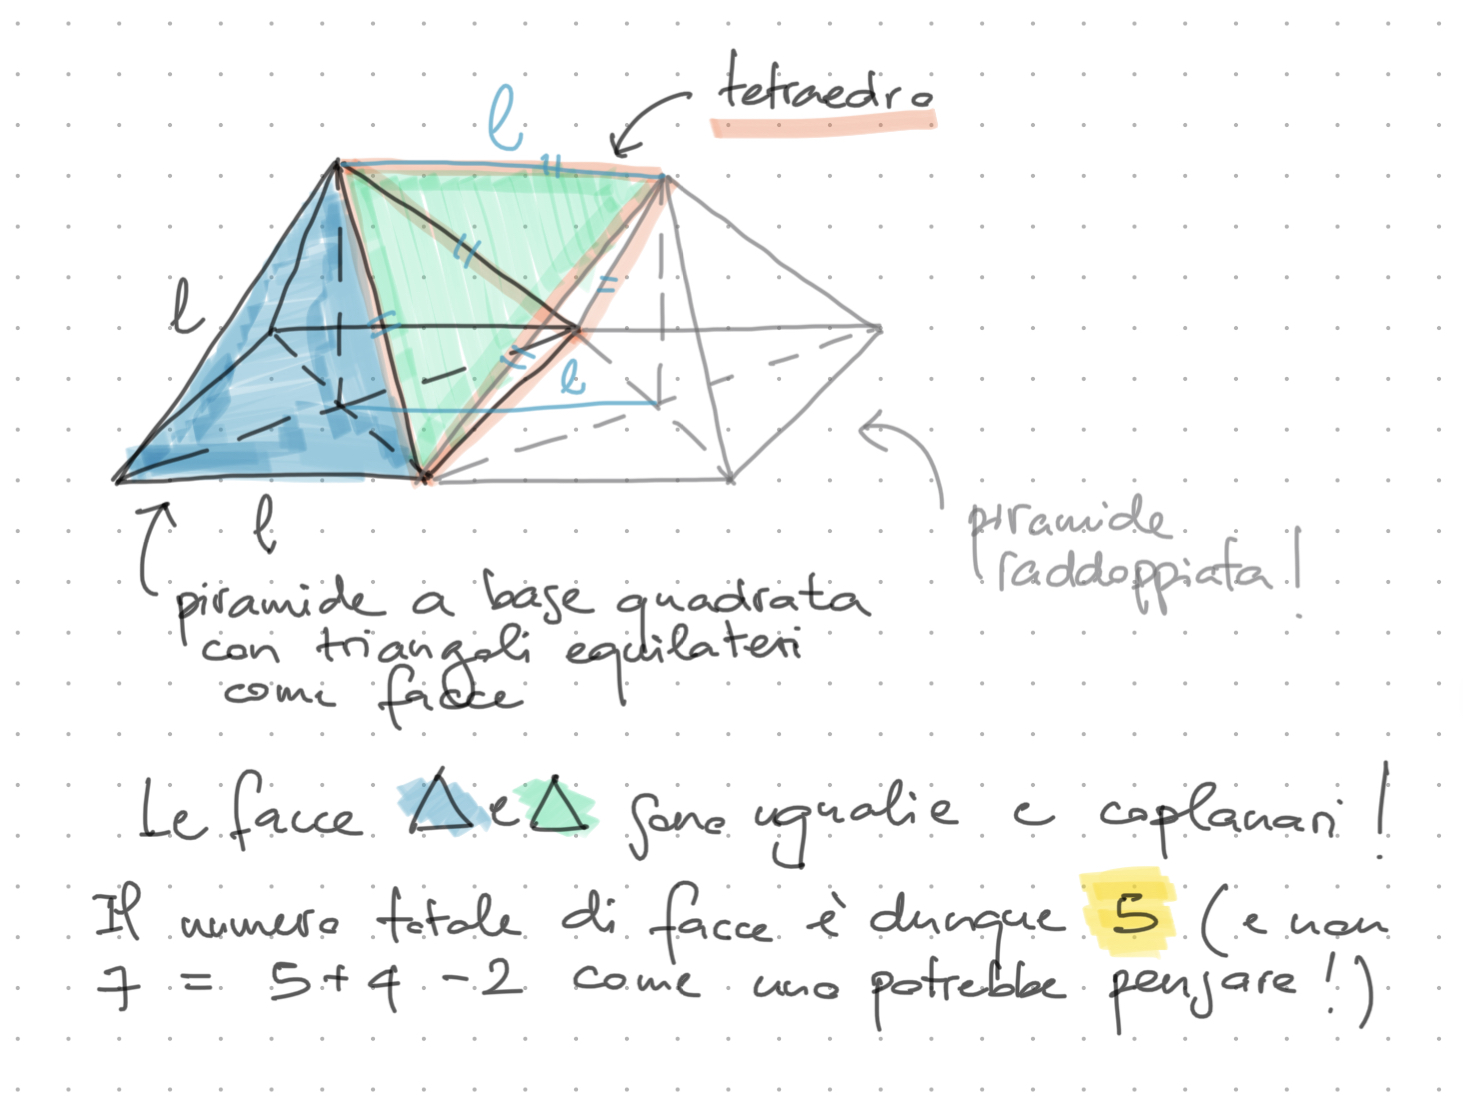 l
tetraedro
l
l
l
piramide
raddoppiata!
piramide a base quadrata
con triangoli equilateri
come facce
Le facce △ e △ sono ugualie e coplanari!
Il numero totale di facce è dunque 5 (e non
7 = 5+4-2 come uno potrebbe pensare!)